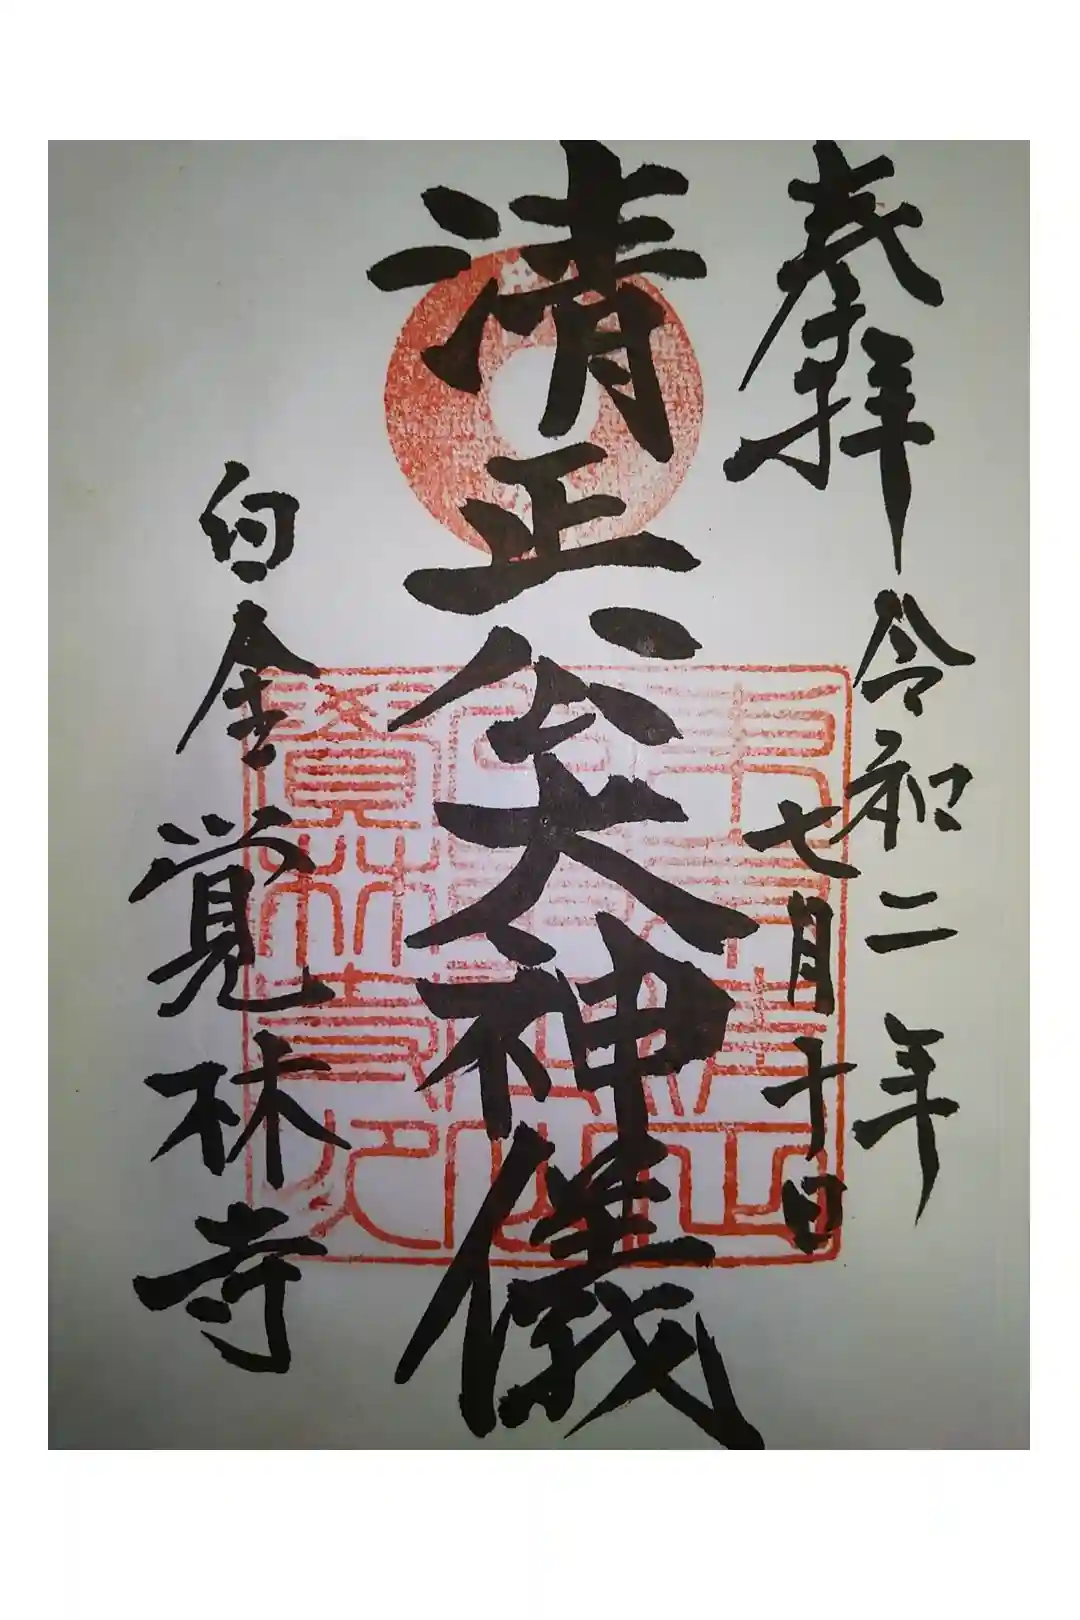 奉拝
令和二年
七月十日
清正公大神儀
白金覚林寺